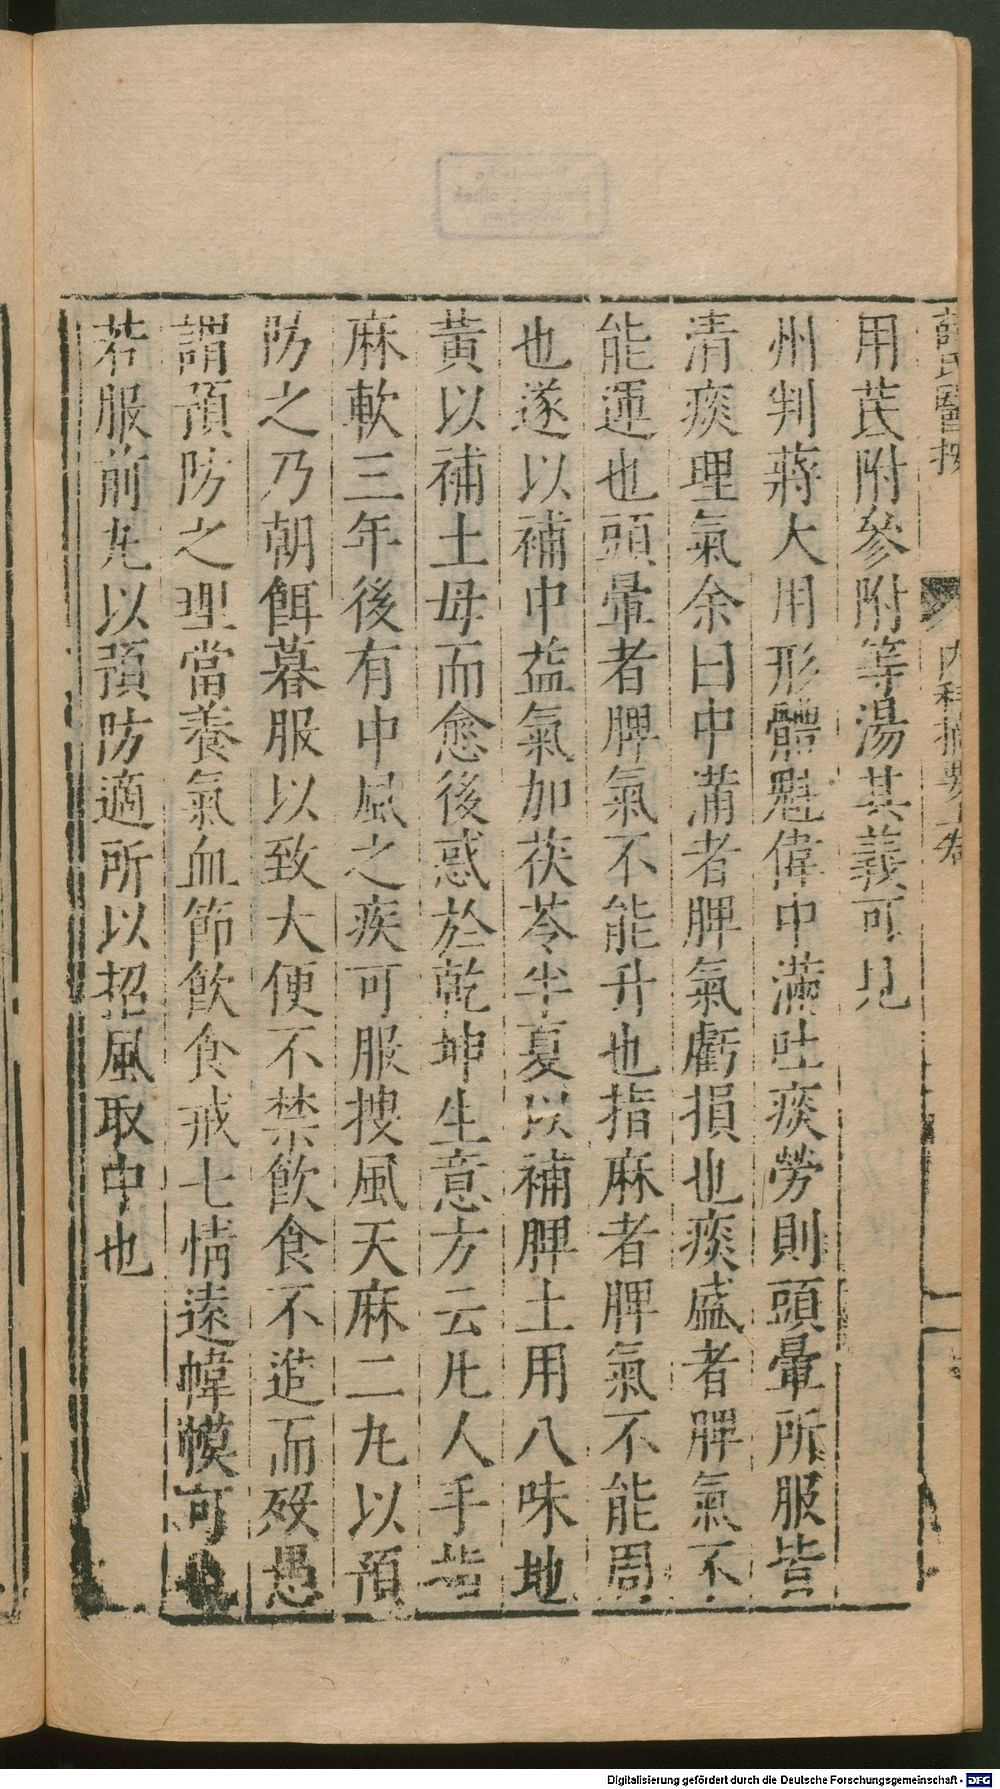 薛氏醫按　內科摘要上卷
用芪附參附等湯其義可見
州判蔣大用形體魁偉中滿吐痰勞則頭暈所服皆
清痰理氣余曰中滿者脾氣虧損也痰盛者脾氣不
能運也頭暈者脾氣不能升也指麻者脾氣不能周
也遂以補中益氣加茯苓半夏以補脾土用八味地
黃以補土母而愈後惑於乾坤生意方云凡人手指
麻軟三年後有中風之疾可服搜風天麻二丸以預
防之乃朝餌暮服以致大便不禁飲食不進而歿愚
謂預防之理當養氣血節飲食戒七情遠幃幙可也
若服前丸以預防適所以招風取中也
Digitalisierung gefördert durch die Deutsche Forschungsgemeinschaft - DFG